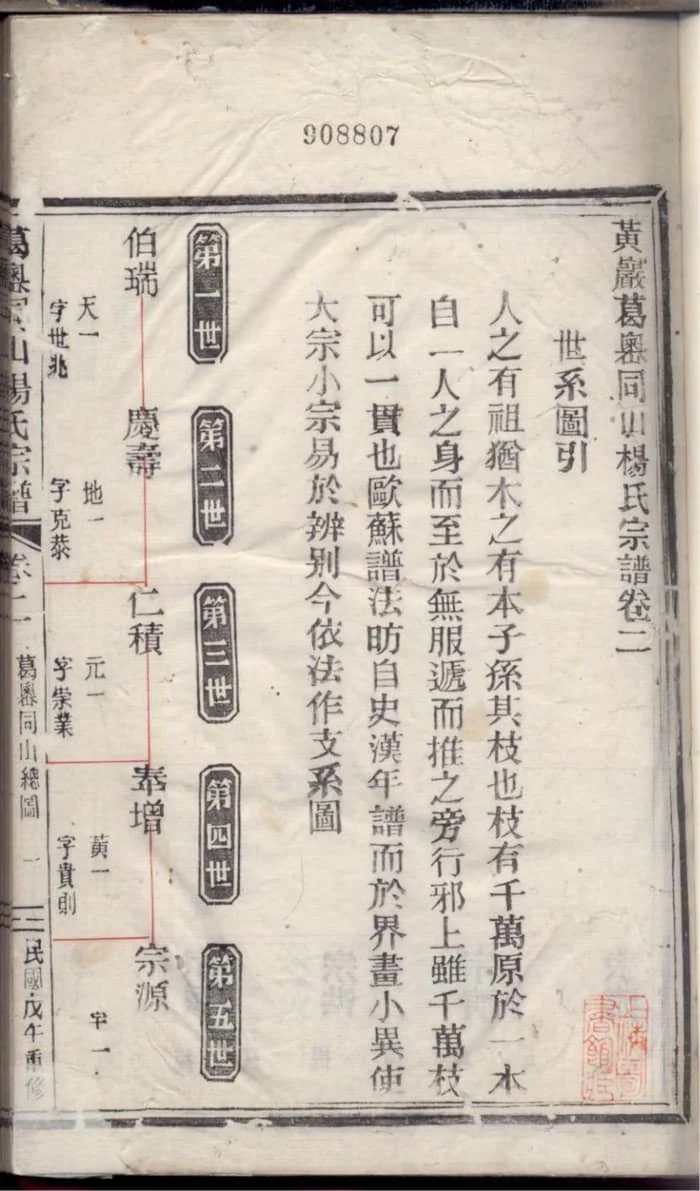 908807
黃巖葛嶴同山楊氏宗譜卷二
世系圖引
人之有祖猶木之有本子孫其枝也枝有千萬原於一本
自一人之身而至於無服遞而推之旁行邪上雖千萬枝
可以一貫也歐蘇譜法昉自史漢年譜而於界畫小異使
大宗小宗易於辨別今依法作支系圖
第一世
第二世
第三世
第四世
第五世
伯瑞
慶壽
仁積
奉增
宗源
天一
字世兆
地一
字克恭
元一
字崇業
黃一
字貴則
宇一
葛嶴同山楊氏宗譜
卷二
葛嶴同山總圖
一
民國戊午重修
上海圖書館藏